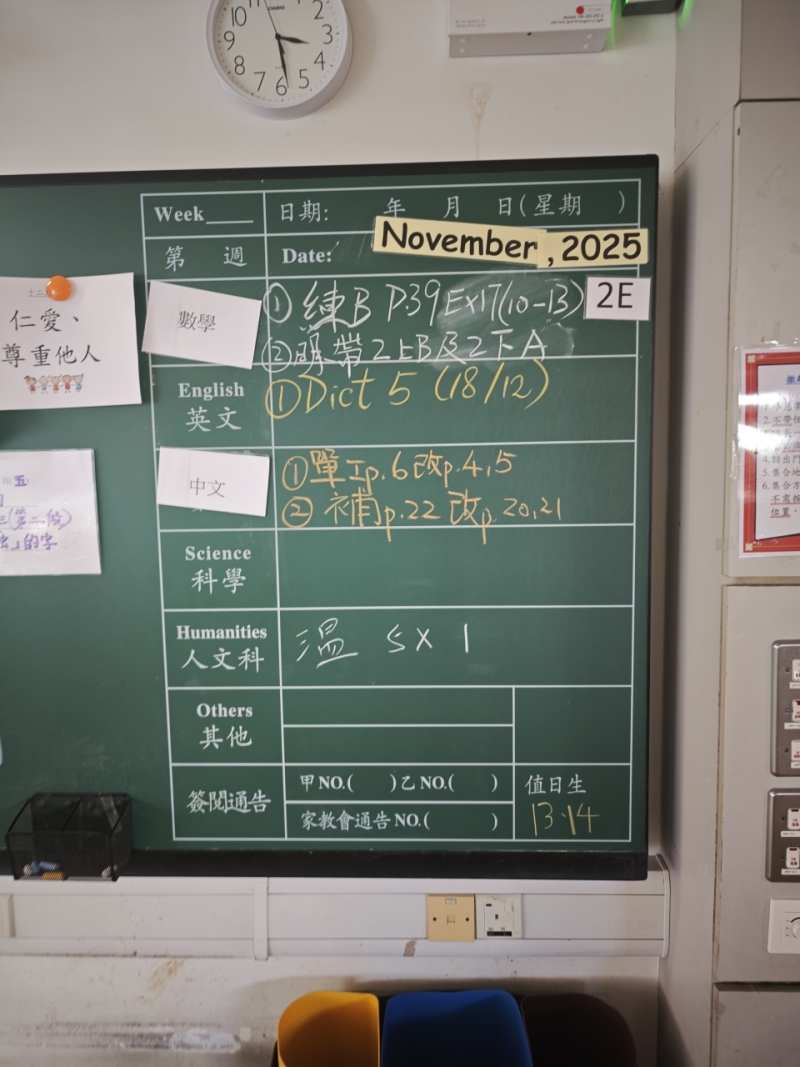 10 11 2 3 4 5 6 7 8 9
CASIO
Week____
日期: 年 月 日(星期 )
第 週
Date:
November, 2025
2E
仁愛、
尊重他人
數學
① 練B P39 EX17(10-13)
② 明帶2上B及2下A
English
英文
① Dict 5 (18/12)
中文
① 單工p.6改p.4,5
② 補p.22 改p.20,21
五
(第二段)
」的字
Science
科學
Humanities
人文科
溫 5X 1
Others
其他
簽閱通告
甲NO.( )乙NO.( )
家教會通告NO.( )
值日生
13、14